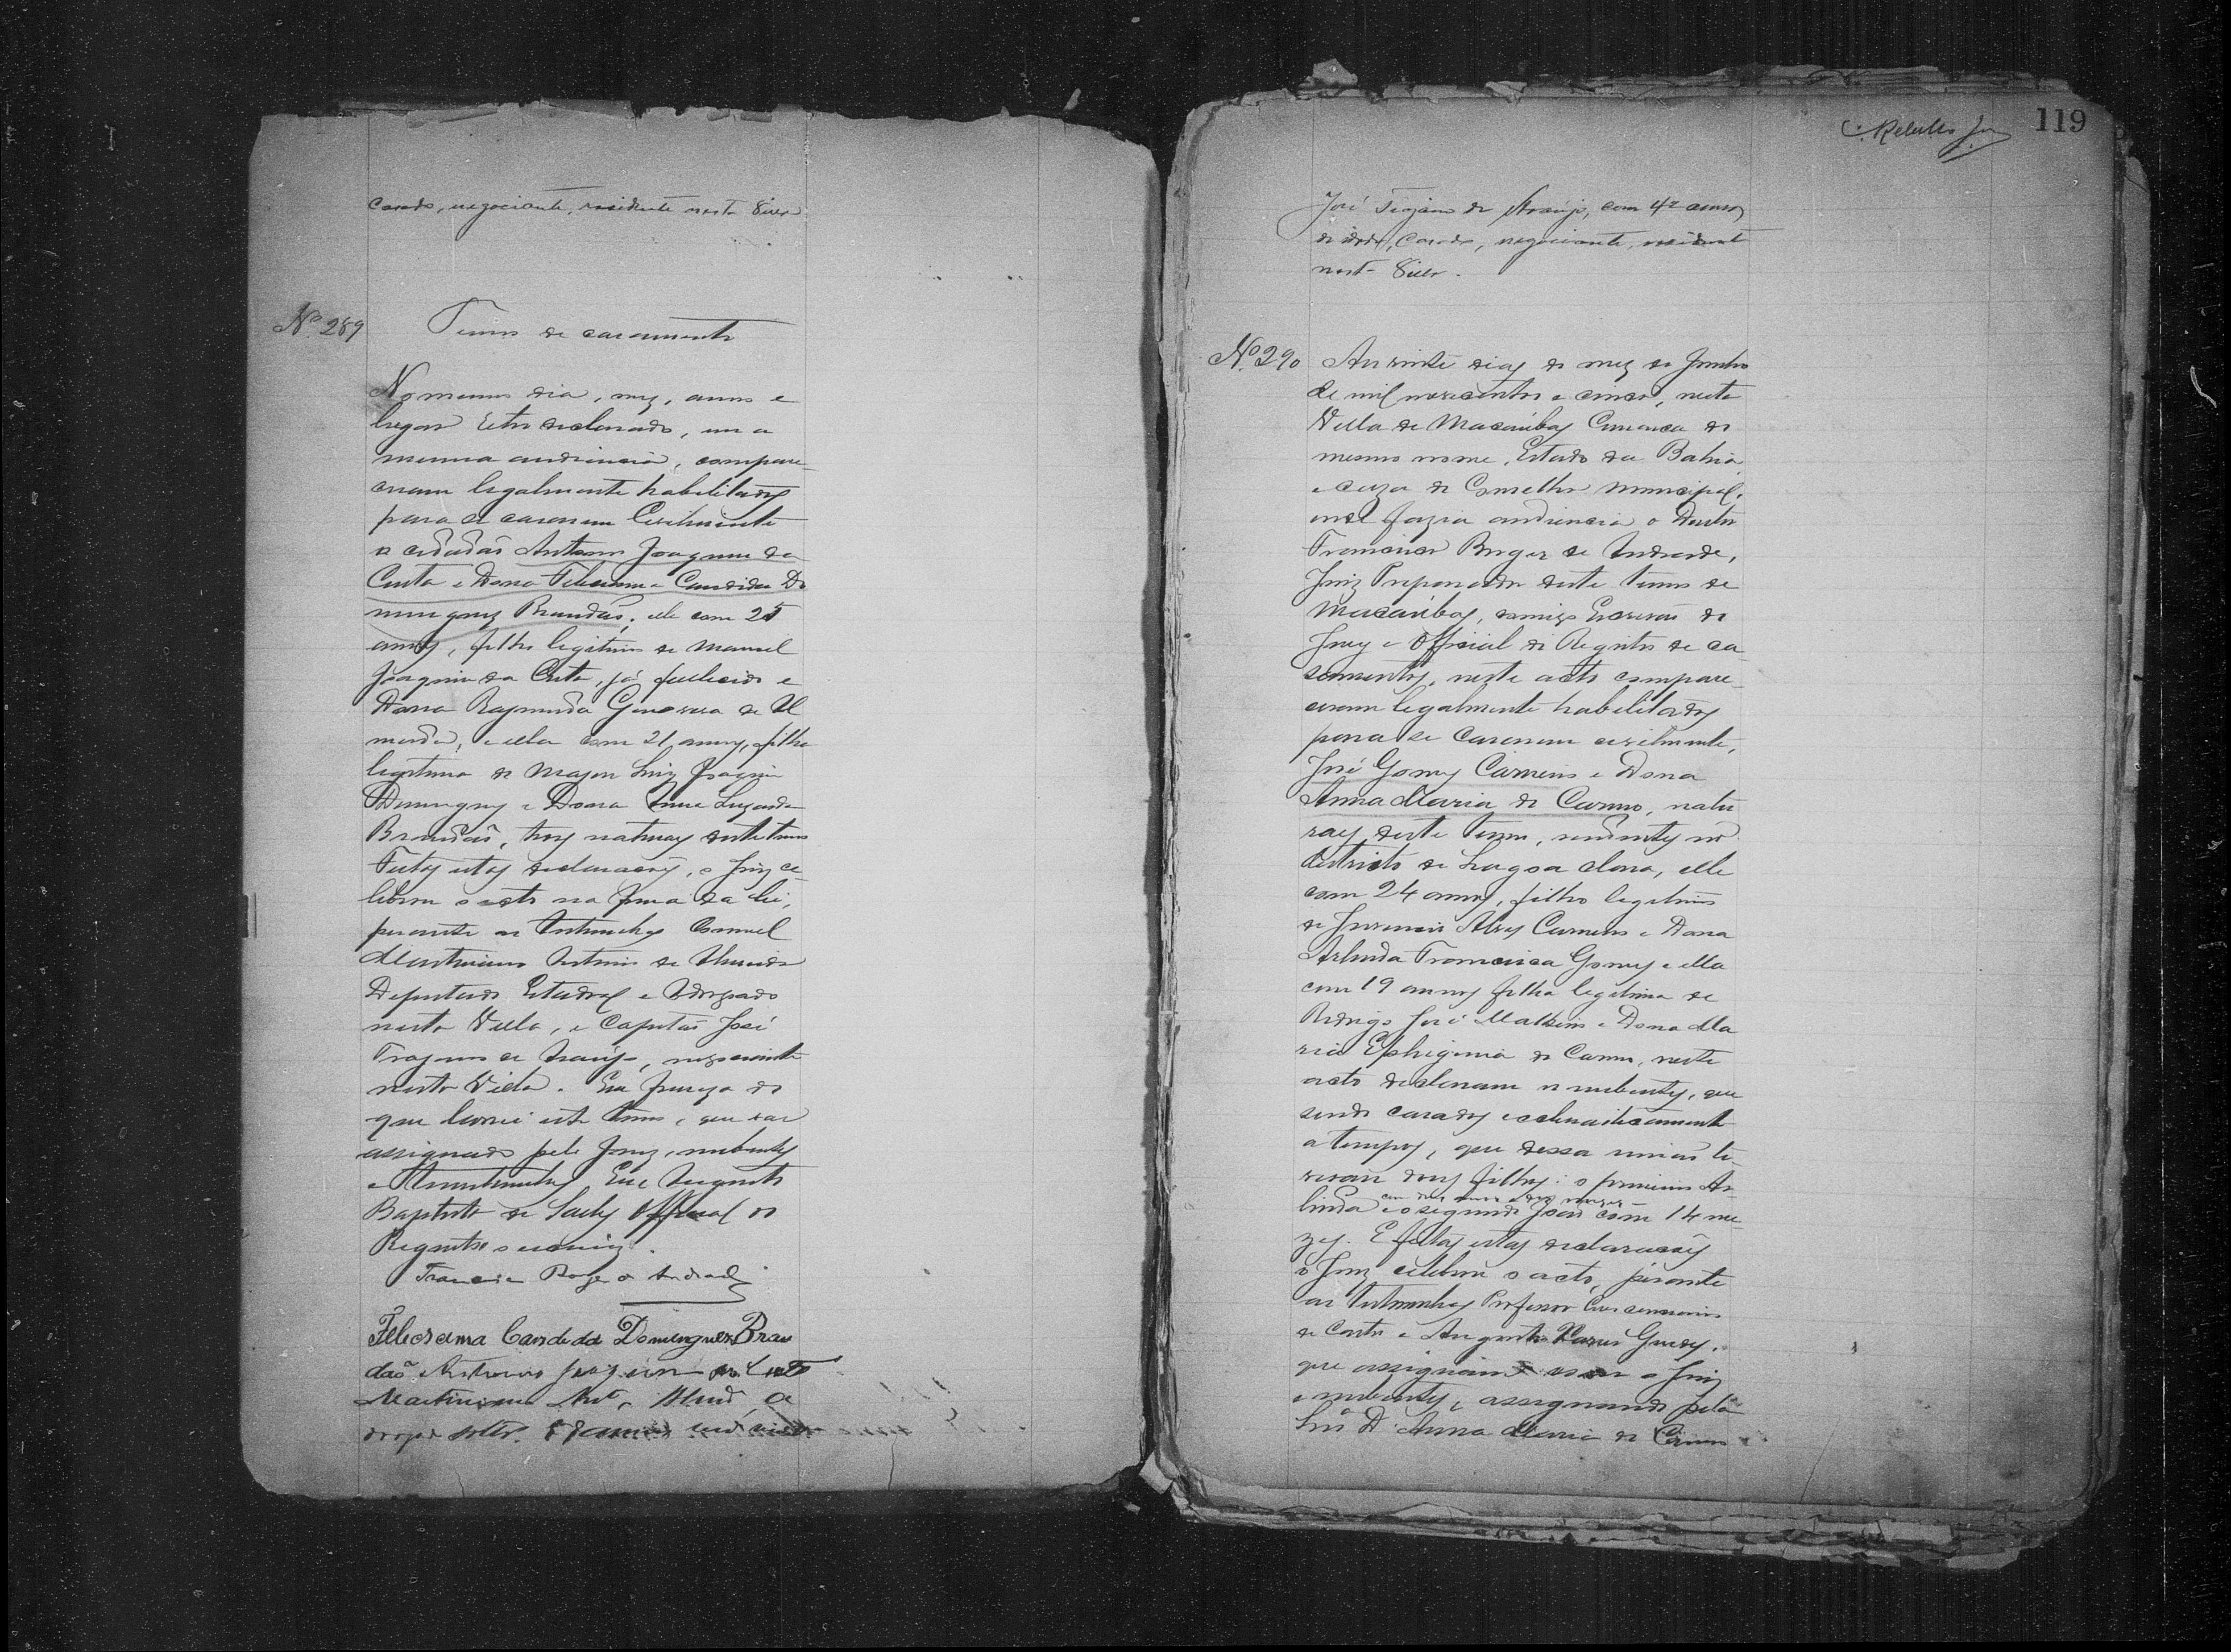 casado, negociante, residente nesta Villa
Nº 289
Termo de casamento
No mesmo dia, mez, anno e
lugar retro declarado, em a
mesma audiencia, compare
ceram legalmente habilitados
para se casarem Civilmente
o cidadão Antonio Joaquim da
Costa e Dona Felicissima Candida Do
mingues Brandão; elle com 25
annos, filho legitimo de Manoel
Joaquim da Costa, já fallecido e
Dona Raymunda Generosa de Al
meida, e ella com 21 annos, filha
legitima do Major Luiz Joaquim
Domingues e Dona Anna
Brandão, naturaes deste termo
Feitas estas declarações, o Juiz ce
lebrou o acto na forma da lei,
perante as testemunhas Coronel
Martiniano Antonio de Almeida
Deputado Estadoal e Advogado
nesta Villa, e Capitão José
Trajano de Araujo, negociante
nesta Villa. Em firmeza do
que lavrei este termo, que vae
assignado pelo Juiz, nubentes
e testemunhas. Eu Augusto
Baptista de Official do
Registro o escrevi.
Francisco Borges de Andrade
Felicissima Candida Domingues Bran
dão Antonio Joaquim da Costa
Martiniano Antº Almdª, a
119
José Trajano de Araujo, com 42 annos
de idade, Casado, negociante, residente
nesta Villa.
Nº 290
Aos vinte dias do mez de Junho
de mil novecentos e cinco, nesta
Villa de Macaúbas Comarca do
mesmo nome, Estado da Bahia,
e caza do Conselho Municipal,
onde fazia audiencia o Doutor
Francisco Borges de Andrade,
Juiz Preparador deste termo de
Macaúbas, comigo Escrivão do
Juiz e Official do Registro de ca
samentos, neste acto compare
ceram legalmente habilitados
para se casarem civilmente,
José Gomes Carneiro e Dona
Anna Maria do Carmo, natu
raes deste termo, residentes no
districto de Lagoa clara, elle
com 24 annos, filho legitimo
de Alves Carneiro e Dona
Arlinda Francisca Gomes e ella
com 19 annos filha legitima de
Rodrigo José Malheiros e Dona Ma
ria Ephigenia do Carmo, neste
acto declararam os nubentes, que
sendo casados ecclesiasticamente
a tempos, que dessa união ti
veram dous filhos: o primeiro Ar
linda com dous annos e dous mezes e o segundo João com 14 me
zes. E feitas estas declarações
o Juiz celebrou o acto, perante
as testemunhas Professor
da Costa e Augusto Guedes,
que assignam com o Juiz
e nubentes, assignando pela
D. Anna Maria do Carmo